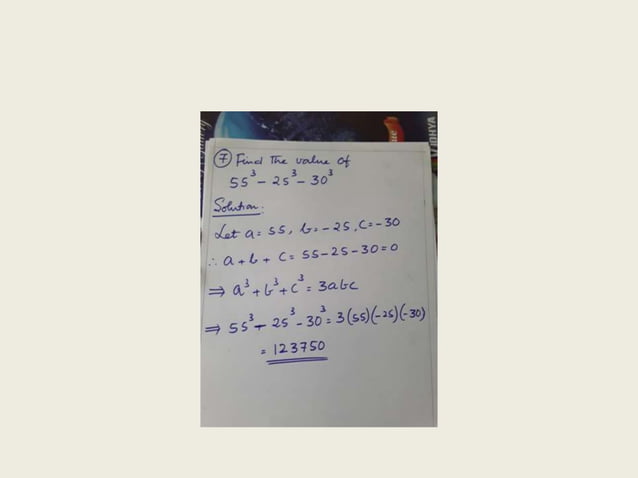 7 Find The value of
55³ - 25³ - 30³
Solution.
Let a = 55, b = -25, c = -30
∴ a + b + c = 55 - 25 - 30 = 0
⇒ a³ + b³ + c³ = 3abc
⇒ 55³ - 25³ - 30³ = 3(55)(-25)(-30)
= 123750